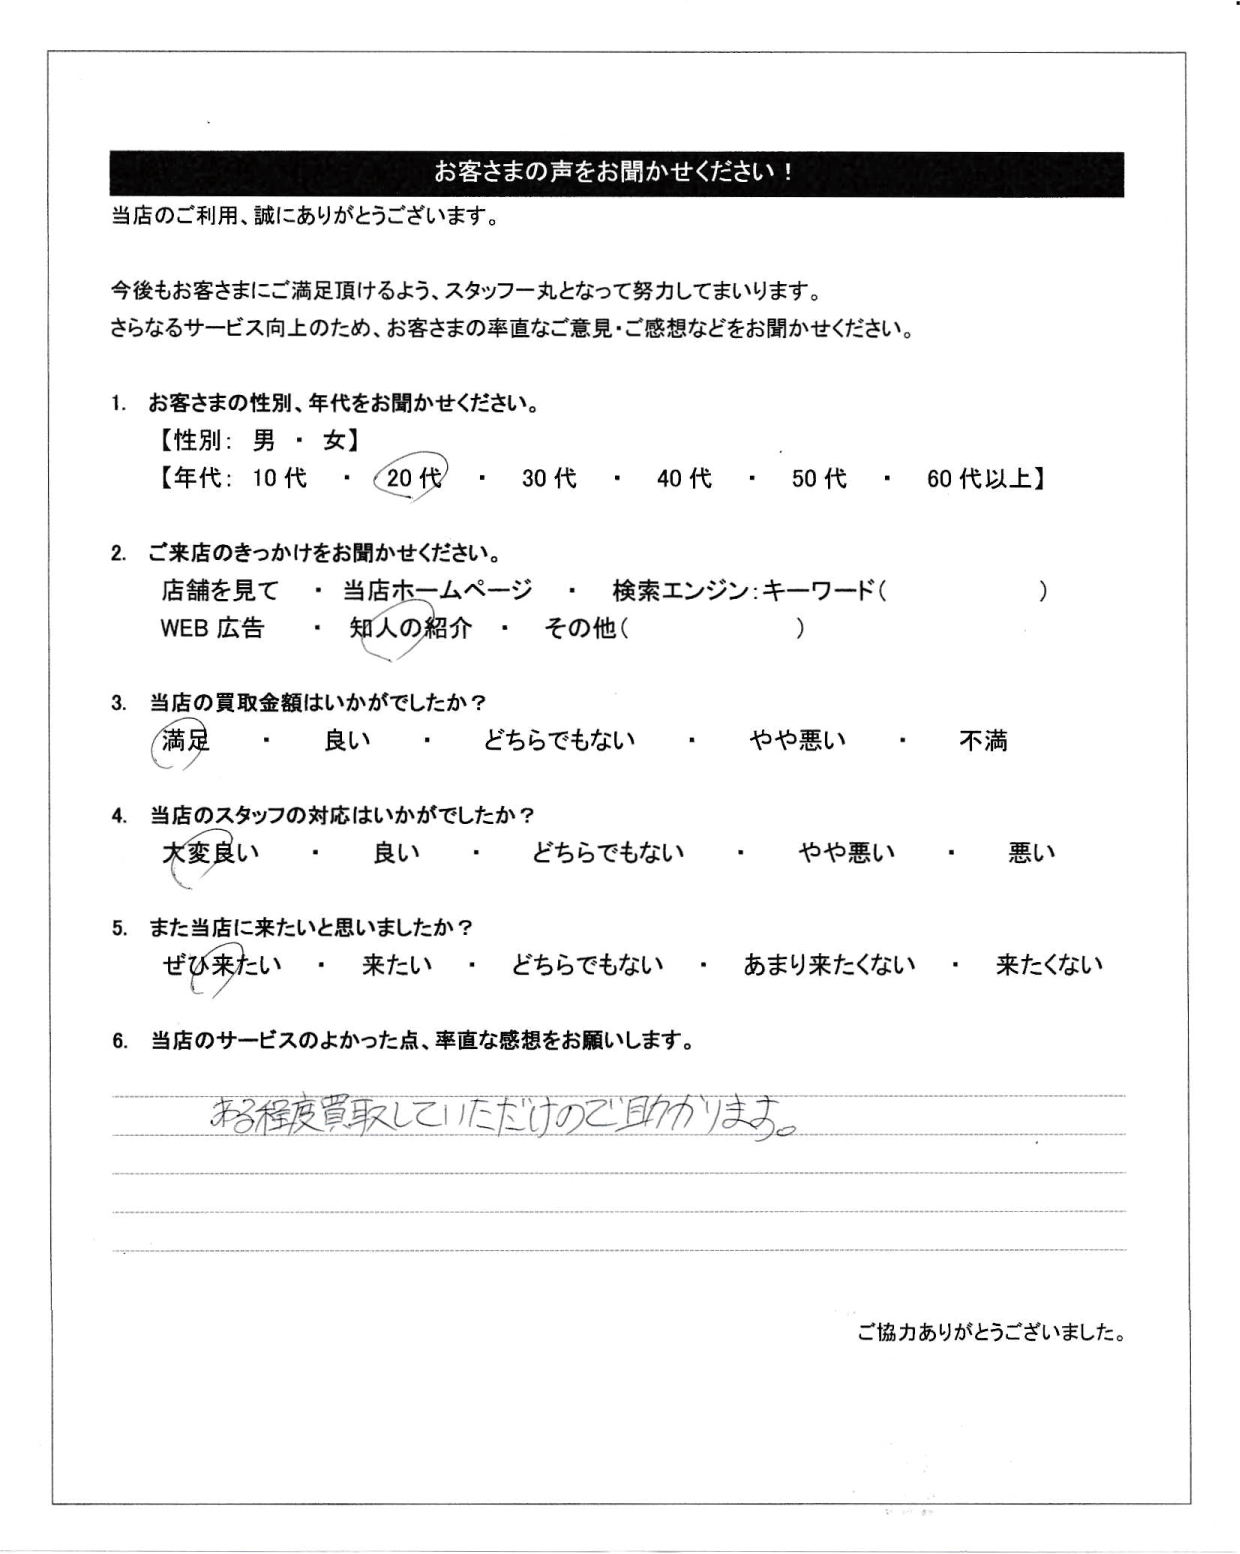 お客さまの声をお聞かせください！
当店のご利用、誠にありがとうございます。
今後もお客さまにご満足頂けるよう、スタッフ一丸となって努力してまいります。
さらなるサービス向上のため、お客さまの率直なご意見・ご感想などをお聞かせください。
1. お客さまの性別、年代をお聞かせください。
【性別： 男 ・ 女】
【年代： 10代 ・ 20代 ・ 30代 ・ 40代 ・ 50代 ・ 60代以上】
2. ご来店のきっかけをお聞かせください。
店舗を見て ・ 当店ホームページ ・ 検索エンジン：キーワード（ ）
WEB広告 ・ 知人の紹介 ・ その他（ ）
3. 当店の買取金額はいかがでしたか？
満足 ・ 良い ・ どちらでもない ・ やや悪い ・ 不満
4. 当店のスタッフの対応はいかがでしたか？
大変良い ・ 良い ・ どちらでもない ・ やや悪い ・ 悪い
5. また当店に来たいと思いましたか？
ぜひ来たい ・ 来たい ・ どちらでもない ・ あまり来たくない ・ 来たくない
6. 当店のサービスのよかった点、率直な感想をお願いします。
ある程度買取していただけので助かります。
ご協力ありがとうございました。